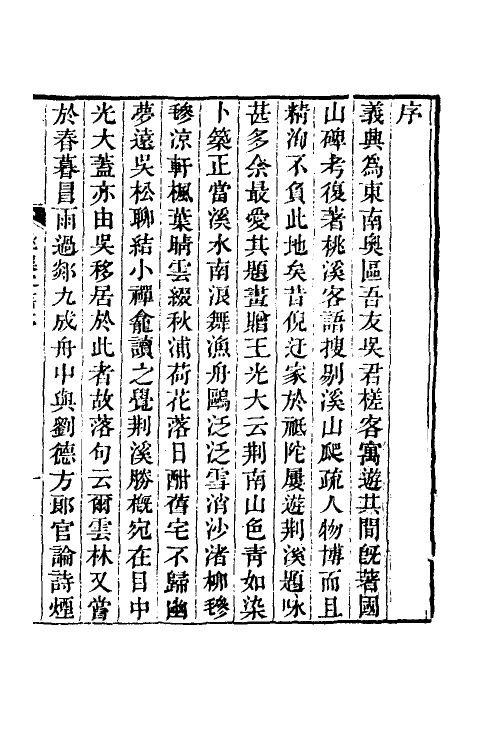 序
義興為東南奧區吾友吳君槎客寓遊其間既著國
山碑考復著桃溪客語搜剔溪山爬疏人物博而且
精洵不負此地矣昔倪迂家於祗陀屢遊荆溪題咏
甚多余最愛其題畫贈王光大云荆南山色青如染
卜築正當溪水南浪舞漁舟鷗泛泛雪消沙渚柳毿
毿凉軒楓葉晴雲綴秋浦荷花落日酣舊宅不歸幽
夢遠吳松聊結小禪龕讀之覺荆溪勝概宛在目中
光大蓋亦由吳移居於此者故落句云爾雲林又嘗
於春暮冒雨過郯九成舟中與劉德方郎官論詩煙